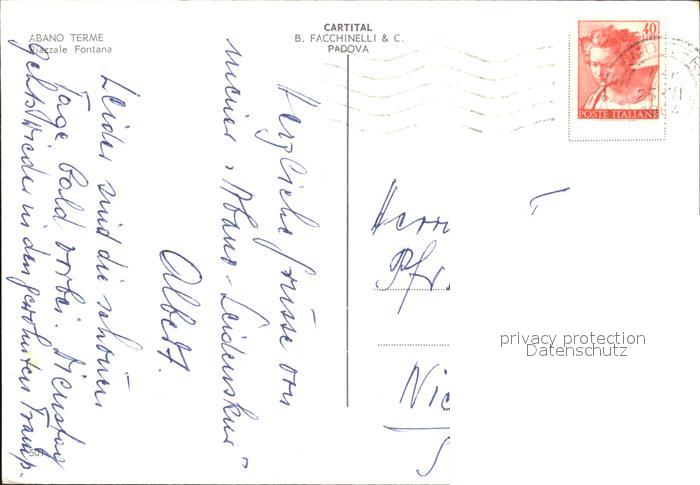 ABANO TERME
Piazzale Fontana
CARTITAL
B. FACCHINELLI & C.
PADOVA
40
LIRE
POSTE ITALIANE
Herzliche Grüsse von
meiner "Abano-Leidenskur"
Albert.
Leider sind die schönen
Tage bald vorbei. Dienstag
geht's wieder in den gewohnten Tramp.
Herrn
Pfr.
Nic
S
privacy protection
Datenschutz